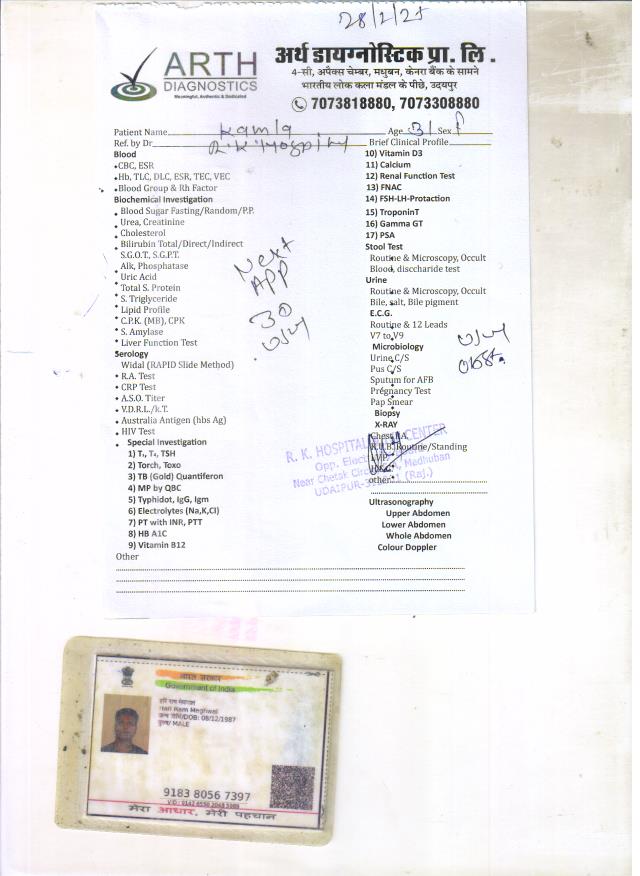 28/2/25
ARTH
DIAGNOSTICS
Meaningful, Authentic & Dedicated
अर्थ डायग्नोस्टिक प्रा. लि.
4-सी, अपैक्स चेम्बर, मधुबन, केनरा बैंक के सामने
भारतीय लोक कला मंडल के पीछे, उदयपुर
7073818880, 7073308880
Patient Name Kamla Age 31 Sex F
Ref. by Dr. R.K. Hospital Brief Clinical Profile
Blood
CBC, ESR
Hb, TLC, DLC, ESR, TEC, VEC
Blood Group & Rh Factor
Biochemical Investigation
Blood Sugar Fasting/Random/P.P.
Urea, Creatinine
Cholesterol
Bilirubin Total/Direct/Indirect
S.G.O.T., S.G.P.T.
Alk, Phosphatase
Uric Acid
Total S. Protein
S. Triglyceride
Lipid Profile
C.P.K. (MB), CPK
S. Amylase
Liver Function Test
Serology
Widal (RAPID Slide Method)
R.A. Test
CRP Test
A.S.O. Titer
V.D.R.L./k.T.
Australia Antigen (hbs Ag)
HIV Test
Special Investigation
1) T₃, T₄, TSH
2) Torch, Toxo
3) TB (Gold) Quantiferon
4) MP by QBC
5) Typhidot, IgG, Igm
6) Electrolytes (Na,K,Cl)
7) PT with INR, PTT
8) HB A1C
9) Vitamin B12
Other
Next
APP
30
10) Vitamin D3
11) Calcium
12) Renal Function Test
13) FNAC
14) FSH-LH-Protaction
15) TroponinT
16) Gamma GT
17) PSA
Stool Test
Routine & Microscopy, Occult
Blood, disccharide test
Urine
Routine & Microscopy, Occult
Bile, salt, Bile pigment
E.C.G.
Routine & 12 Leads
V7 to V9
Microbiology
Urine C/S
Pus C/S
Sputum for AFB
Pregnancy Test
Pap Smear
Biopsy
X-RAY
K.U.B. Routine/Standing
other
usg
obst.
R. K. HOSPITAL CENTER
Near Chetak Circle, Madhuban
UDAIPUR (Raj.)
Ultrasonography
Upper Abdomen
Lower Abdomen
Whole Abdomen
Colour Doppler
भारत सरकार
Government of India
हरि राम मेघवाल
Hari Ram Meghwal
जन्म तिथि/DOB: 08/12/1987
पुरुष/ MALE
9183 8056 7397
मेरा आधार, मेरी पहचान